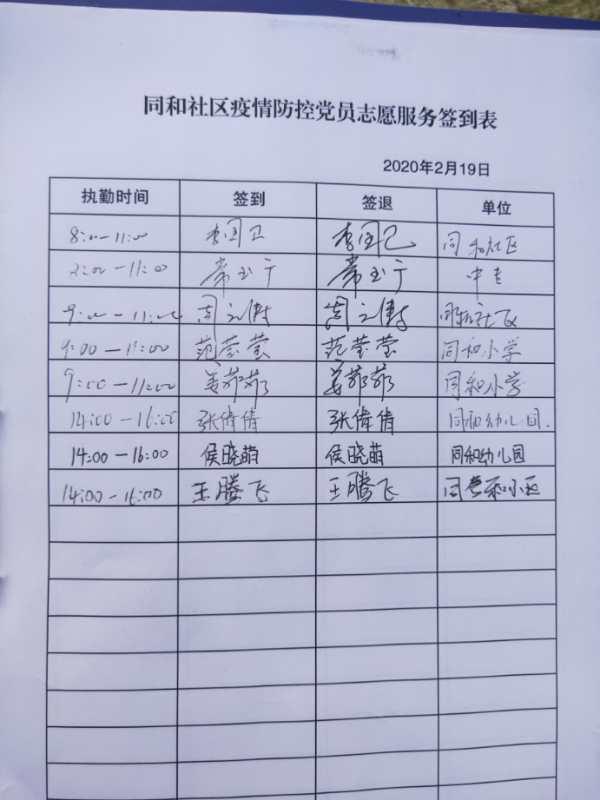 同和社区疫情防控党员志愿服务签到表
2020年2月19日
执勤时间 签到 签退 单位
8:00-11:00 李国卫 李国卫 同和社区
2:00-11:00 常玉宁 常玉宁
9:00-11:00 周 周 同和社区
9:00-11:00 范莹莹 范莹莹 同和小学
9:00-11:00 姜郁郁 姜郁郁 同和小学
14:00-16:00 张倩倩 张倩倩 同和幼儿园.
14:00-16:00 侯晓萌 侯晓萌 同和幼儿园
14:00-16:00 王腾飞 王腾飞